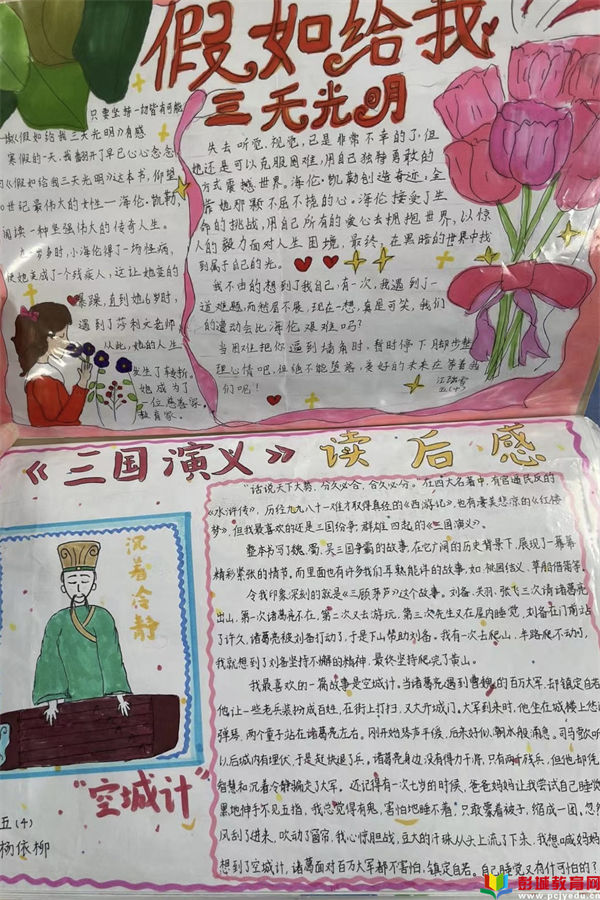 假如给我
三天光明
只要坚持一切皆有可能
《假如给我三天光明》有感
寒假的一天,我翻开了早已心心念念
的《假如给我三天光明》这本书,仰望
20世纪最伟大的女性—海伦·凯勒,
阅读一种坚强伟大的传奇人生。
岁多时,小海伦得了一场怪病,
使她变成了一个残疾人,这让她变的
暴躁,直到她6岁时,
遇到了莎利文老师
从此,她的人生
发生了转折。
她成为了
一位慈善家、
教育家。
失去听觉、视觉,已是非常不幸的了,但
她还是可以克服困难,用自己独特勇敢的
方式震撼世界。海伦·凯勒创造奇迹,全
靠她那颗不屈不挠的心。海伦接受了生
命的挑战,用自己所有的爱心去拥抱世界,以惊
人的毅力面对人生困境,最终,在黑暗的世界中找
到属于自己的光。
我不由的想到了我自己,有一次,我遇到了一
道难题,而愁眉不展,现在一想,真是可笑,我们
的遭动会比海伦艰难吗?
当困难把你逼到墙角时,暂时停下脚步整
理心情吧,但他不能堕落,美好的未来在等着我
们呢!
五(4)
《三国演义》读后感
沉着冷静
“空城计”
五(4)
杨依柳
“话说天下大势,分久必合,合久必分。在四大名著中,有官逼民反的
《水浒传》,历经九九八十一难才取得真经的《西游记》,也有凄美悲凉的《红楼
梦》,但我最喜欢的还是三国纷争,群雄四起的《三国演义》。
整本书写了魏、蜀、吴三国争霸的故事,在它广阔的历史背景下,展现了一幕幕
精彩紧张的情节。而里面也有许多我们耳熟能详的故事,如:桃园结义、草船借箭等。
令我印象深刻的就是《三顾茅庐》这个故事。刘备、关羽、张飞三次请诸葛亮
出山,第一次诸葛亮不在,第二次又去游玩,第三次先生又在屋内睡觉,刘备在门前站
了许久,诸葛亮被刘备打动了,于是下山帮助刘备。我有一次去爬山,半路爬不动了,
我就想到了刘备坚持不懈的精神,最终坚持爬完了黄山。
我最喜欢的一篇故事是空城计。当诸葛亮遇到曹魏的百万大军,却镇定自若。
他让一些老兵装扮成百姓,在街上打扫,又大开城门。大军到来时,他坐在城楼上悠
弹琴,两个童子站在诸葛亮左右。刚开始琴声平缓,后来好似潮水般汹急。司马懿听
以后城内有埋伏,于是赶快退了兵。诸葛亮身边没有得力干将,只有两千残兵,但他却凭
智慧和沉着冷静骗走了大军。还记得有一次七岁的时候,爸爸妈妈让我尝试自己睡觉
黑地伸手不见五指,我总觉得有鬼,害怕地睡不着。只敢蒙着被子,缩成一团,忽然
风刮了进来,吹动了窗帘,我心惊胆战,豆大的汗珠从头上流了下来,我想喊妈妈
想到了空城计,诸葛面对百万大军都不害怕,镇定自若。自己睡觉又有什可怕的?
彭城教育网
www.pcjyedu.cn